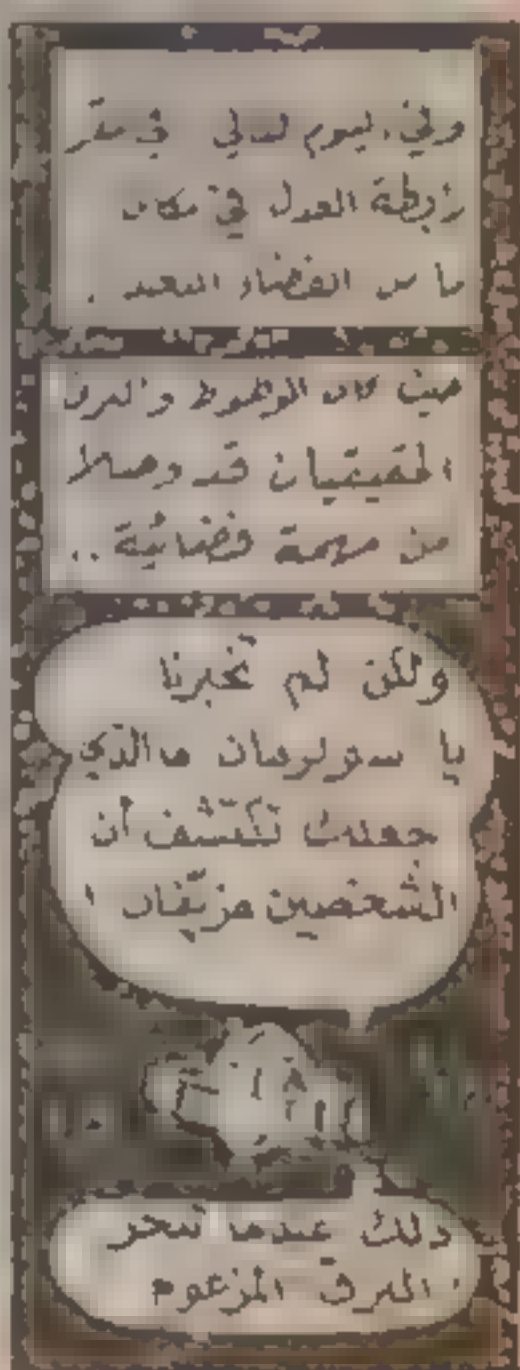 وفي اليوم التالي في مقر
رابطة العدل في مكان
ما من الفضاء البعيد .
حيث كان الوطواط والبرق
الحقيقيان قد وصلا
من مهمة فضائية ..
ولكن لم تخبرنا
يا سوبرمان ما الذي
جعلك تكتشف أن
الشخصين مزيّفان !
ذلك عندما تبخر
البرق المزعوم